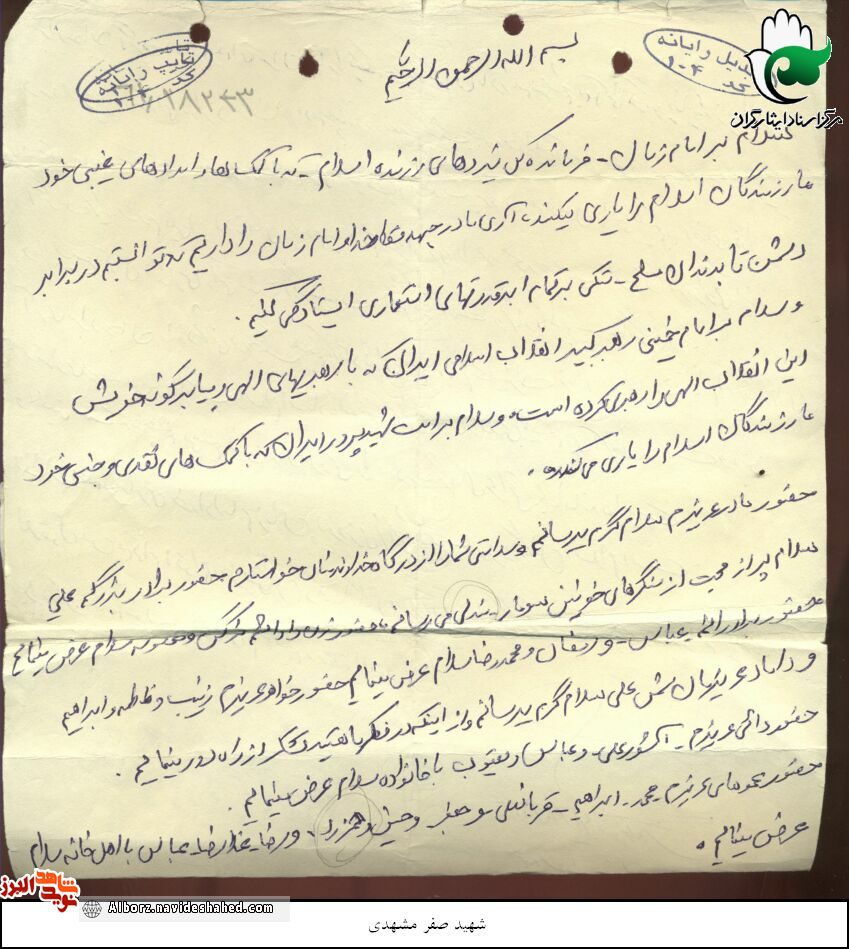 بسم الله الرحمن الرحیم
تبدیل رایانه
کد ۱۰۴
تایپ رایانه
کد
مرکز اسناد ایثارگران
سلام بر امام زمان - فرمانده کل نبردهای رزمنده اسلام - که با کمکها و امدادهای غیبی خود
ما رزمندگان اسلام را یاری میکند، آری ما در جبهه خدا و امام زمان را داریم که توانستیم در برابر
دشمن تا بدندان مسلح - متکی بر تمام ابرقدرتهای استعماری ایستادگی کنیم.
و سلام بر امام خمینی رهبر کبیر انقلاب اسلامی ایران که با رهبریهای الهی و پیامبرگونه خویش
این انقلاب الهی را رهبری کرده است و سلام بر امت شهیدپرور ایران که با کمک های نقدی و جنسی خود
ما رزمندگان اسلام را یاری می کنند.
حضور مادر عزیزم سلام گرم میرسانم و سلامتی شما را از درگاه خداوند خواستارم حضور برادر بزرگم علی
سلام پر از محبت از سنگرهای خونین سومار - می رسانم حضور زن داداشم نرگس و معصومه سلام عرض مینمایم
حضور برادرانم عباس - و رمضان و محمدرضا سلام عرض مینمایم حضور خواهر عزیزم زینب و فاطمه و ابراهیم
و داماد عزیزمان شمس علی سلام گرم میرسانم و از اینکه در فکر ما هستید تشکر از راه دور مینمایم.
حضور دائی عزیزم - و عباس و یعقوب با خانواده سلام عرض مینمایم.
حضور عموهای عزیزم محمد - ابراهیم - قربانعلی - و جعفر و حسین و و رضا - غلامرضا - عباس با اهل خانه سلام
عرض مینمایم.
نوید شاهد البرز
Alborz.navideshahed.com
شهید صفر مشهدی